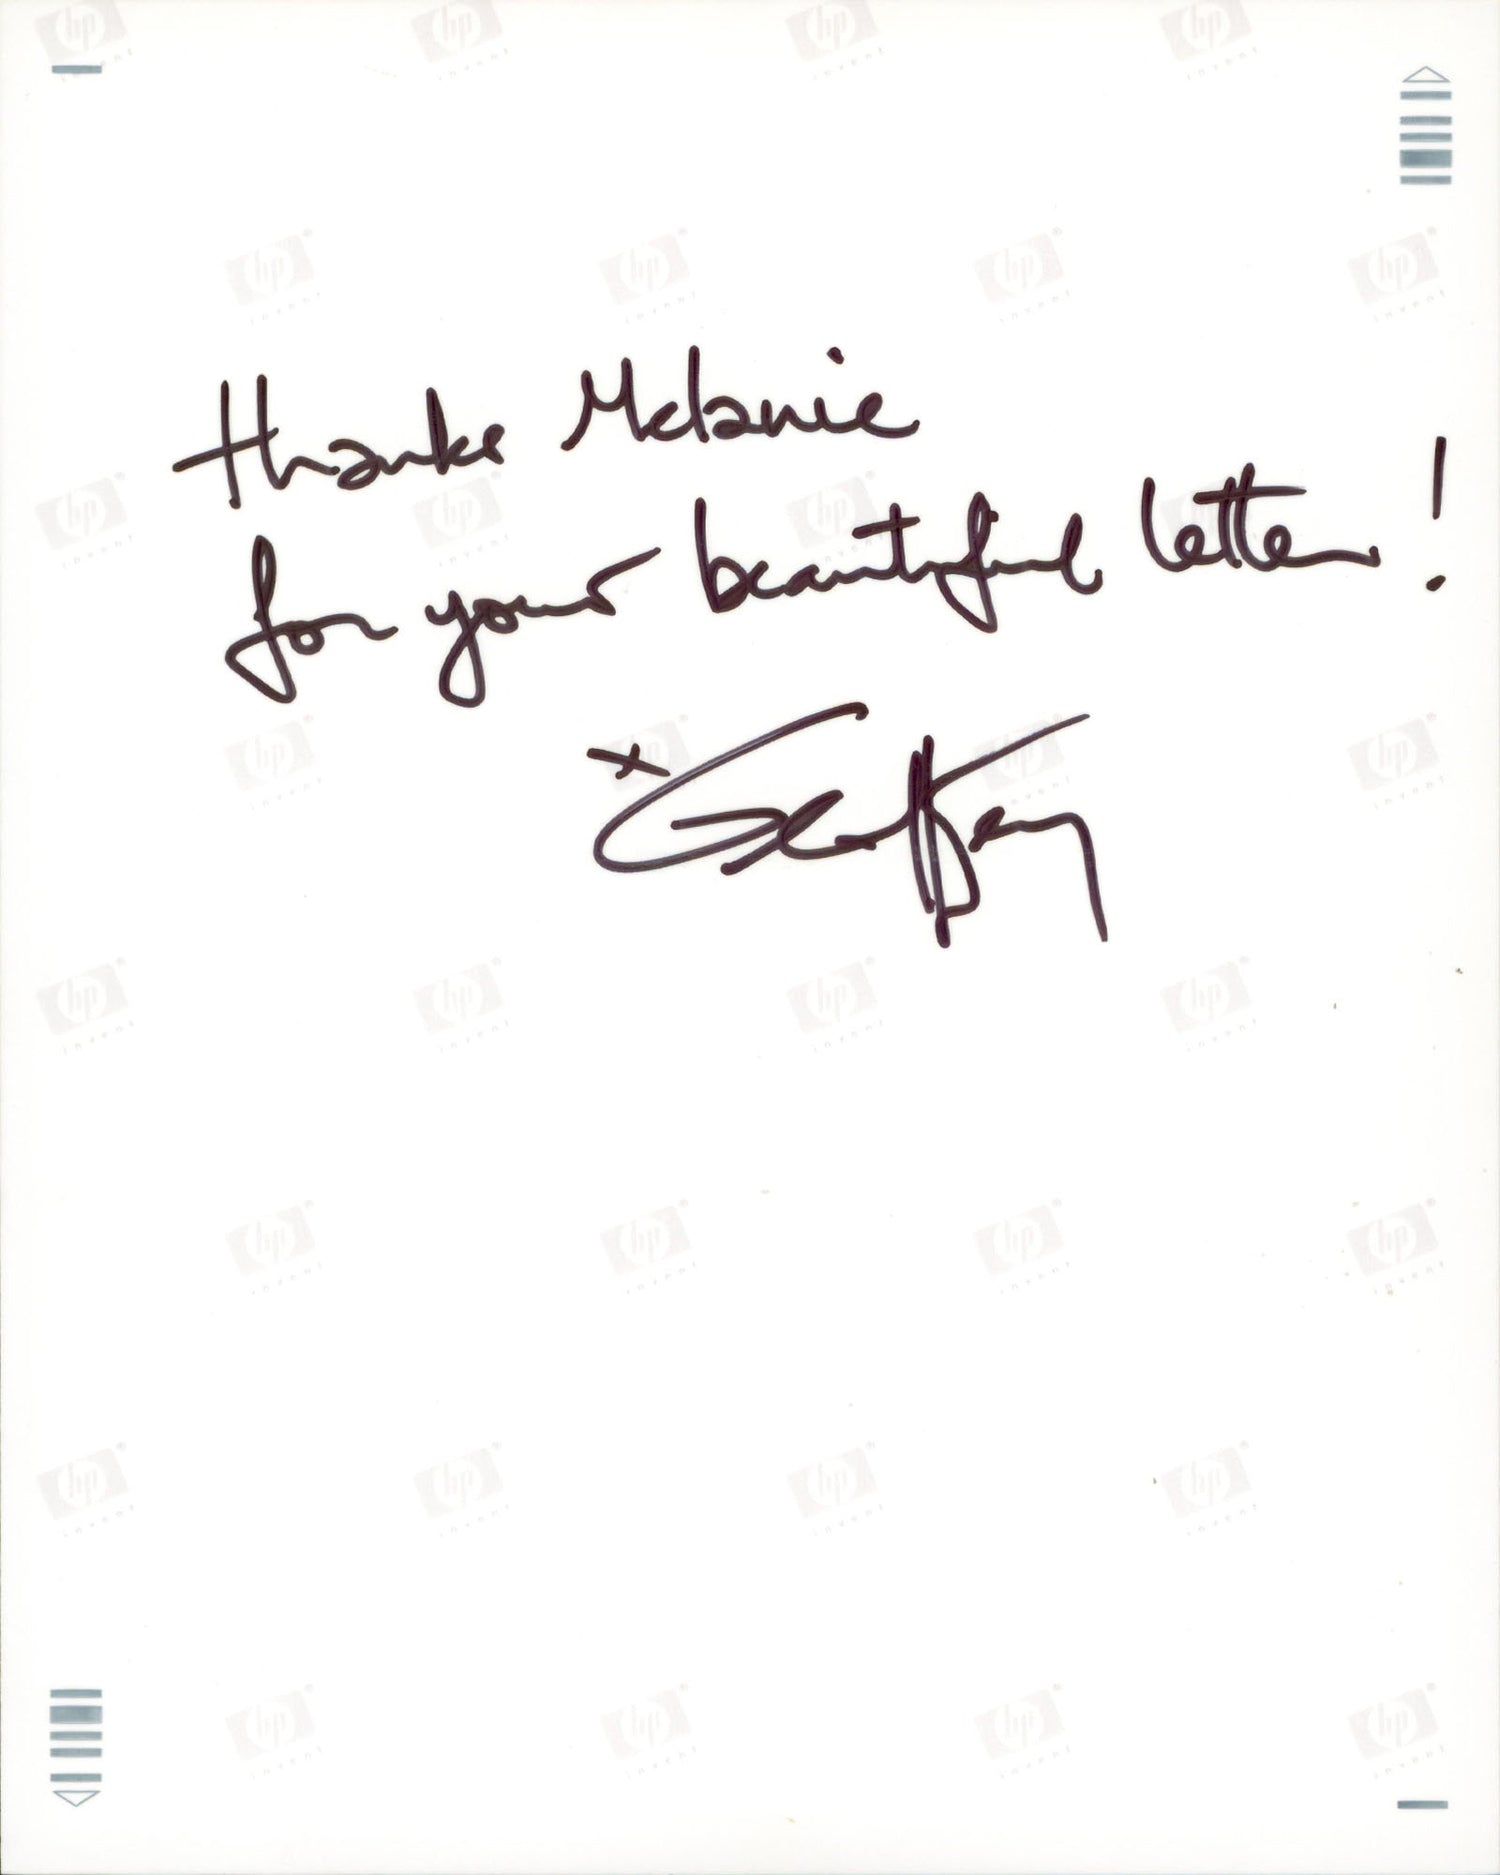 Thanks Melanie
for your beautiful letter!
x Geoffrey